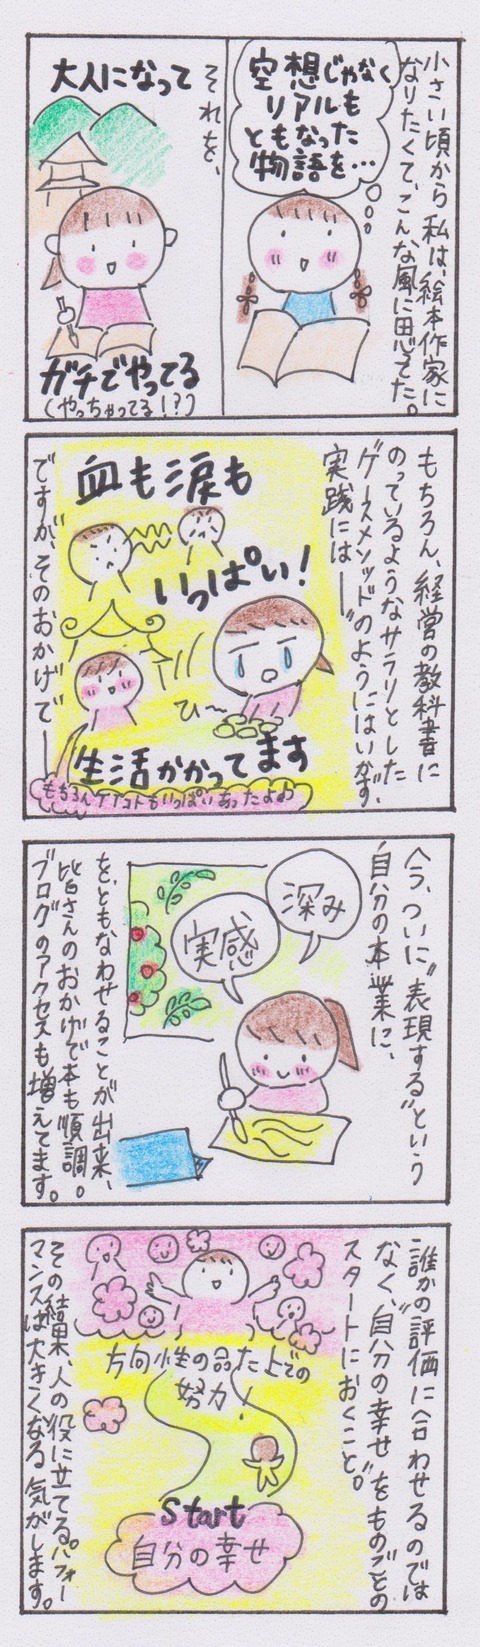 小さい頃から私は、絵本作家に
なりたくて、こんな風に思ってた。
空想じゃなく
リアルも
ともなった
物語を…
それを、
大人になって
ガチでやってる
(やっちゃってる!?)
もちろん、経営の教科書に
のっているようなサラリとした
"ゲースメソッド"のようにはいかず、
実践には――
血も涙も
いっぱい!
ひ〜
ですが、そのおかげで――
生活かかってます
もちろんケアコトもいっぱいあったよ♪
今、ついに"表現する"という
自分の本業に、
深み
実感
を、ともなわせることが出来、
皆さんのおかげで本も順調。
ブログのアクセスも増えてます。
誰かの評価に合わせるのでは
なく、"自分の幸せ"をものごとの
スタートにおくこと。
方向性の合った上での
努力!
Start
自分の幸せ
その結果、人の役に立てるパフォー
マンスは大きくなる気がします。